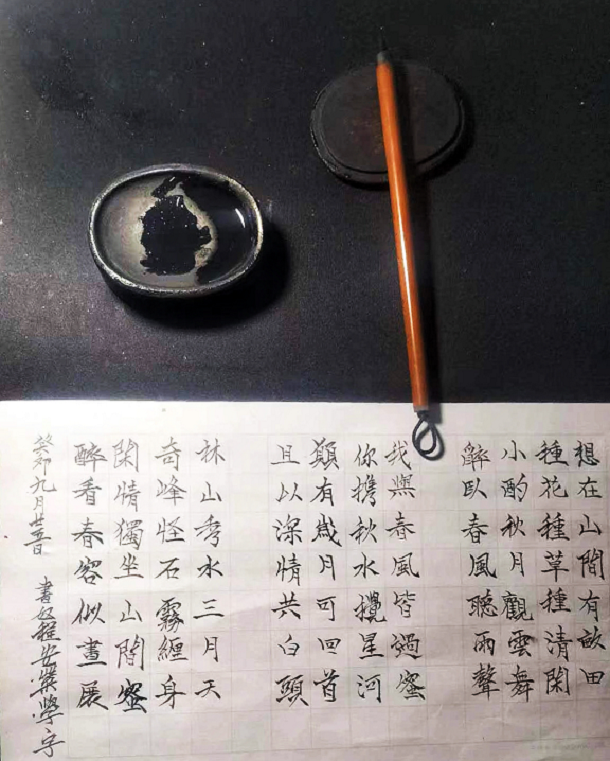 想在山間有畝田
種花種草種清閑
小酌秋月觀雲舞
醉臥春風聽雨聲
我與春風皆過客
你攜秋水攬星河
願有歲月可回首
且以深情共白頭
林山秀水三月天
奇峰怪石霧纏身
閑情獨坐山間客
醉看春容似畫展
癸卯九月廿五日 書奴程安業學字